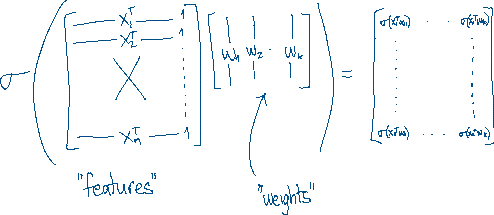 σ ( [ — x₁ᵀ — 1 ; — x₂ᵀ — 1 ; X ⋮ ; — xₙᵀ — 1 ] [ w₁ w₂ · wₖ ] ) = [ σ(x₁ᵀw₁) ·· σ(x₁ᵀwₖ) ; ⋮ ⋮ ; σ(xₙᵀw₁) ··· σ(xₙᵀwₖ) ]
"features"
"weights"